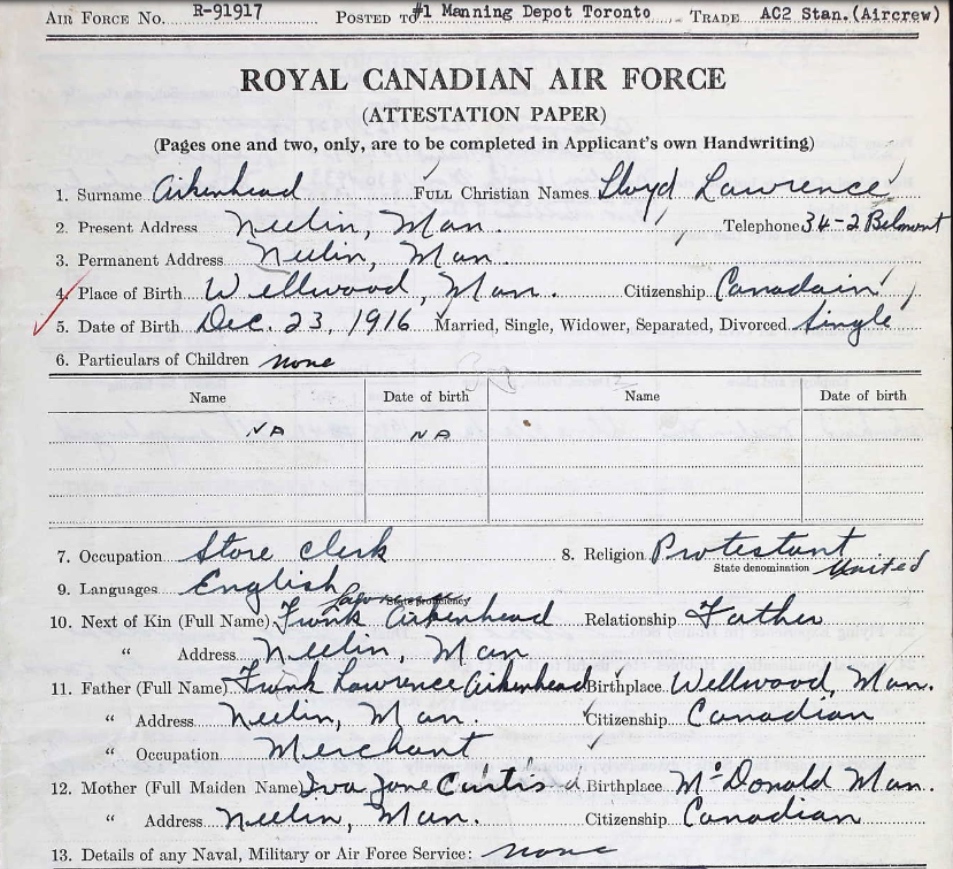 AIR FORCE NO. R-91917 POSTED TO #1 Manning Depot Toronto TRADE AC2 Stan.(Aircrew)
ROYAL CANADIAN AIR FORCE
(ATTESTATION PAPER)
(Pages one and two, only, are to be completed in Applicant's own Handwriting)
1. Surname Aikenhead FULL Christian Names Lloyd Lawrence
2. Present Address Neelin, Man. Telephone 34-2 Belmont
3. Permanent Address Neelin, Man.
4. Place of Birth Wellwood, Man. Citizenship Canadain
5. Date of Birth Dec. 23, 1916 Married, Single, Widower, Separated, Divorced Single
6. Particulars of Children none
Name Date of birth Name Date of birth
NA NA
7. Occupation Store clerk 8. Religion Protestant
State denomination United
9. Languages English
Lawrence State proficiency
10. Next of Kin (Full Name) Frank Aikenhead Relationship Father
" Address Neelin, Man
11. Father (Full Name) Frank Lawrence Aikenhead Birthplace Wellwood, Man.
" Address Neelin, Man. Citizenship Canadian
" Occupation Merchant
12. Mother (Full Maiden Name) Iva Jane Curtis Birthplace McDonald Man.
" Address Neelin, Man. Citizenship Canadian
13. Details of any Naval, Military or Air Force Service: none